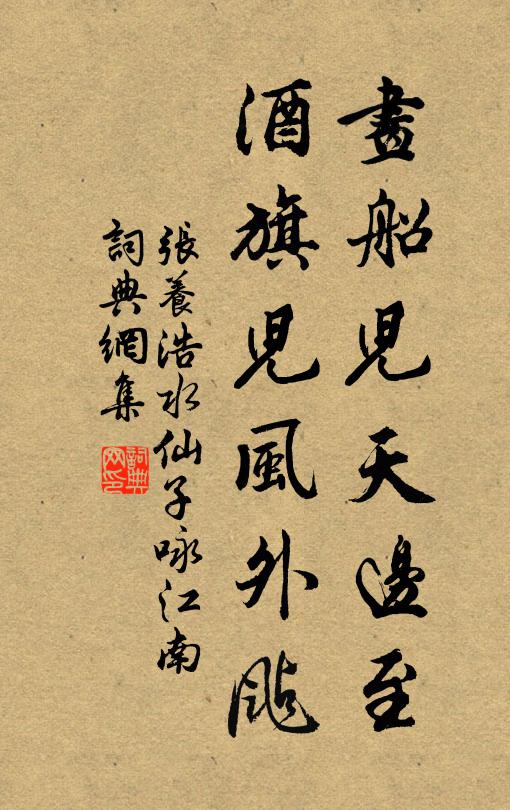 畫船兒天邊至
酒旗兒風外颭
張養浩水仙子咏江南
詞典網集
詞典
网印